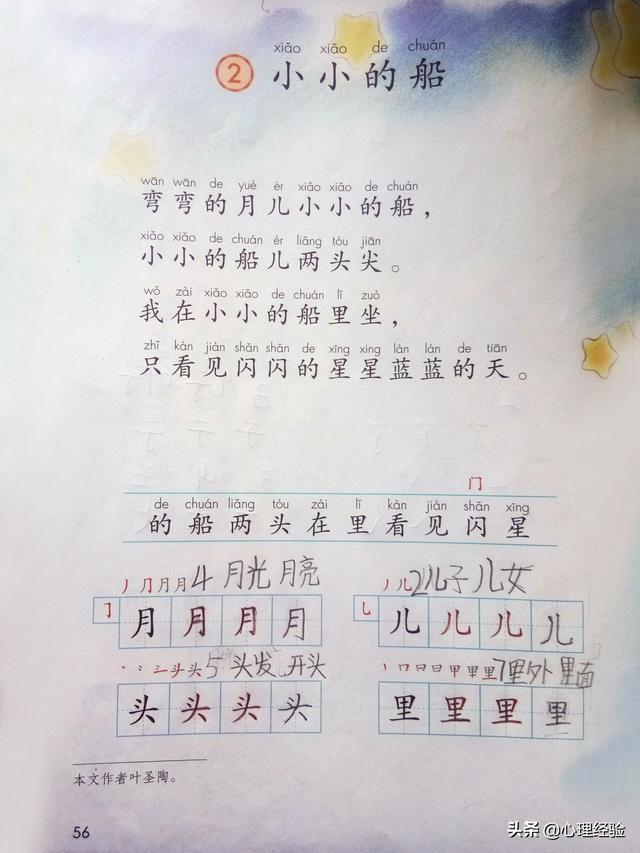 xiǎo xiǎo de chuán
2 小小的船
wān wān de yuè ér xiǎo xiǎo de chuán
弯弯的月儿小小的船，
xiǎo xiǎo de chuán ér liǎng tóu jiān
小小的船儿两头尖。
wǒ zài xiǎo xiǎo de chuán lǐ zuò
我在小小的船里坐，
zhī kàn jiàn shǎn shǎn de xīng xing lán lán de tiān
只看见闪闪的星星蓝蓝的天。
门
de chuán liǎng tóu zài lǐ kàn jiàn shǎn xīng
的船两头在里看见闪星
丿 ⺆ 月 月 4 月光 月亮
丿 儿 2 儿子 儿女
月 月 月 月
儿 儿 儿 儿
头 头 5 头发 开头
丨 口 日 日 甲 里 里 7 里外 里面
头 头 头 头
里 里 里 里
本文作者叶圣陶。
56
头条 @心理经验